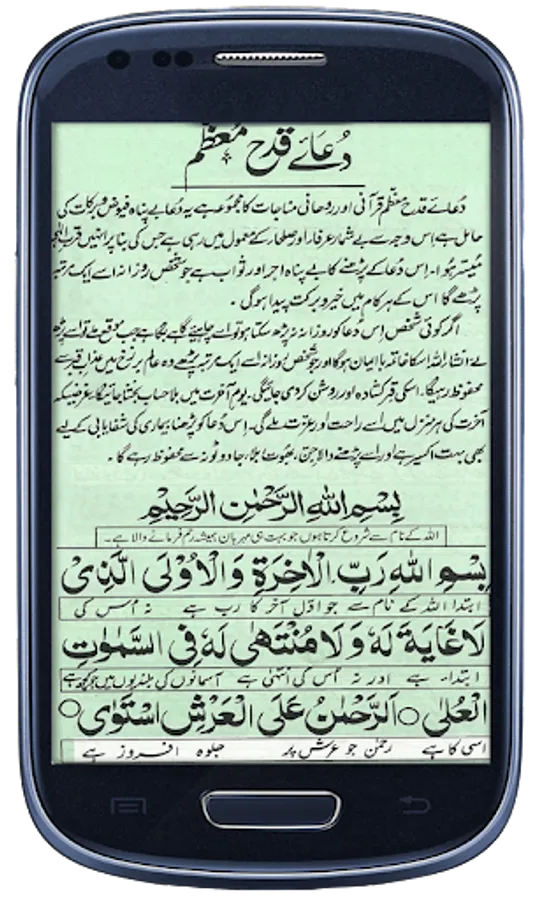 دُعائے قدح معظم
دُعائے قدح معظم قرآنی اور روحانی مناجات کا مجموعہ ہے یہ دُعا بے پناہ فیوض و برکات کی
حامل ہے اس وجہ سے بے شمار عرفا اور صلحا کے معمول میں رہی ہے جس کی بنا پر انہیں قرب الٰہی
میسّر ہُوا۔ اس دُعا کے پڑھنے کا بے پناہ اجر اور ثواب ہے جو شخص روزانہ اسے ایک مرتبہ
پڑھے گا اس کے ہر کام میں خیر و برکت پیدا ہوگی۔
اگر کوئی شخص اس دُعا کو روزانہ نہ پڑھ سکتا ہو تو اسے چاہیئے گاہے بگاہے جب موقع ملے تو اسے پڑھ
لے انشاء اللہ اس کا خاتمہ باایمان ہوگا اور جو شخص روزانہ اسے ایک مرتبہ پڑھے وہ عالم برزخ میں عذاب قبر سے
محفوظ رہیگا۔ اسکی قبر کشادہ اور روشن کر دی جائیگی۔ یوم آخرت میں بلا حساب بخشا جائیگا غرضیکہ
آخرت کی ہر منزل میں اسے راحت اور عزت ملے گی۔ اس دُعا کو پڑھنا بیماری کی شفایابی کے لیے
بھی بہت اکسیر ہے اور اسے پڑھنے والا جن، بھوت بلا، جادو ٹونہ سے محفوظ رہے گا۔
بِسْمِ اللهِ الرَّحْمٰنِ الرَّحِيْمِ
اللہ کے نام سے شروع کرتا ہوں جو بہت ہی مہربان ہمیشہ رحم فرمانے والا ہے۔
بِسْمِ اللهِ رَبِّ الْاٰخِرَةِ وَالْاُوْلَى الَّذِىْ
ابتدا اللہ کے نام سے جو اوّل آخر کا رب ہے نہ اُس کی
لَا غَايَةَ لَهٗ وَلَا مُنْتَهٰى لَهٗ فِى السَّمٰوٰتِ
ابتداء ہے اور نہ اُس کی انتہیٰ ہے آسمانوں کی بلندیوں میں جو کچھ ہے
الْعُلٰى ○ اَلرَّحْمٰنُ عَلَى الْعَرْشِ اسْتَوٰى ○
اسی کا ہے رحمٰن جو عرش پر جلوہ افروز ہے